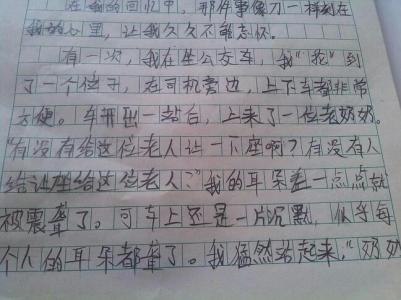 在我的回忆中，那件事像刀一样刻在
我的心里，让我久久不能忘怀。
有一次，我在坐公交车，我“抢”到
了一个位子，在司机旁边，上下车都非常
方便。车开到一站台，上来了一位老奶奶。
“有没有给这位老人让一下座啊？有没有人
给让座给这位老人？”我的耳朵差一点点就
被震聋了。可车上还是一片沉默，似乎每
个人的耳朵都聋了。我猛然站起来，“奶奶